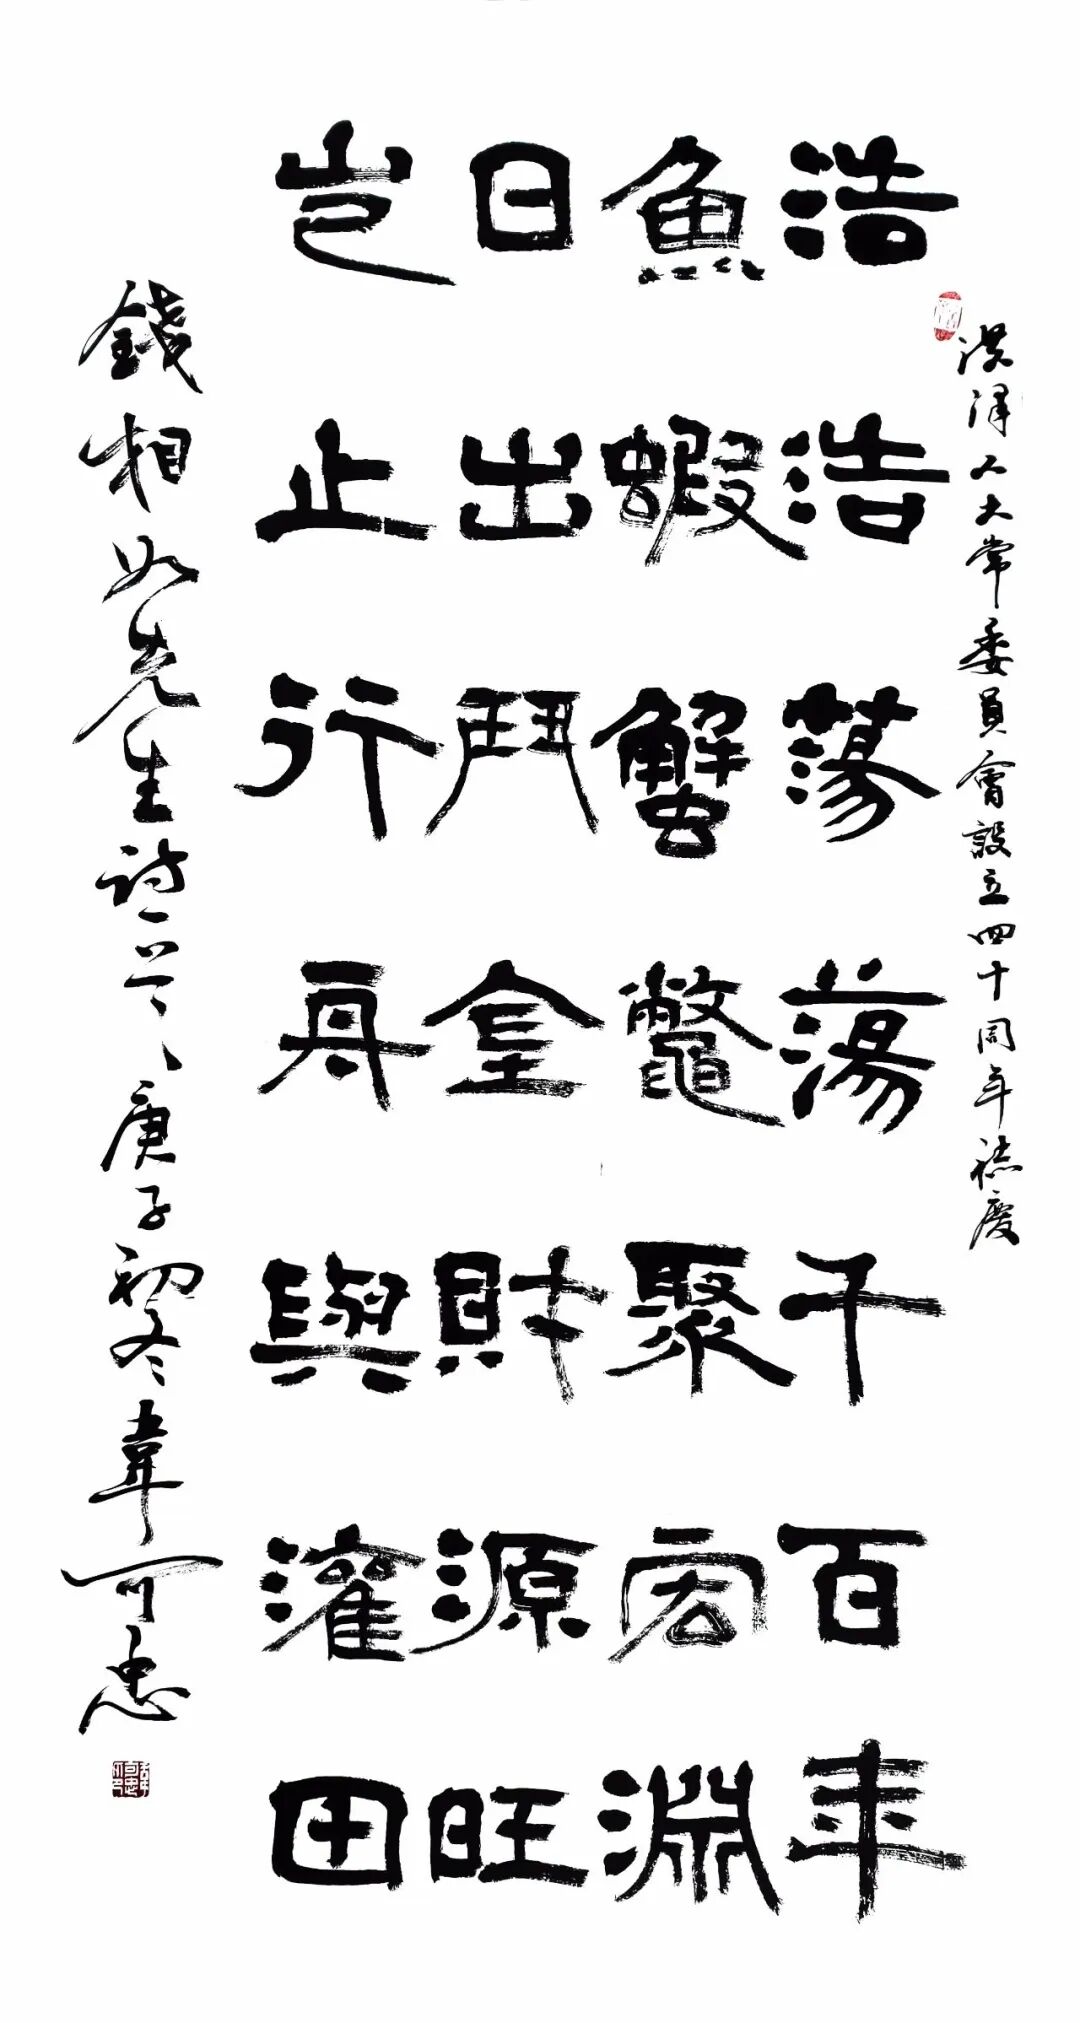 洪澤人大常委員會設立四十周年誌慶
浩浩蕩蕩千百年
魚蝦蟹鱉聚宏淵
日出鬥金財源旺
岂止行舟與灌田
錢相如先生詩一首庚子初冬韋可忠